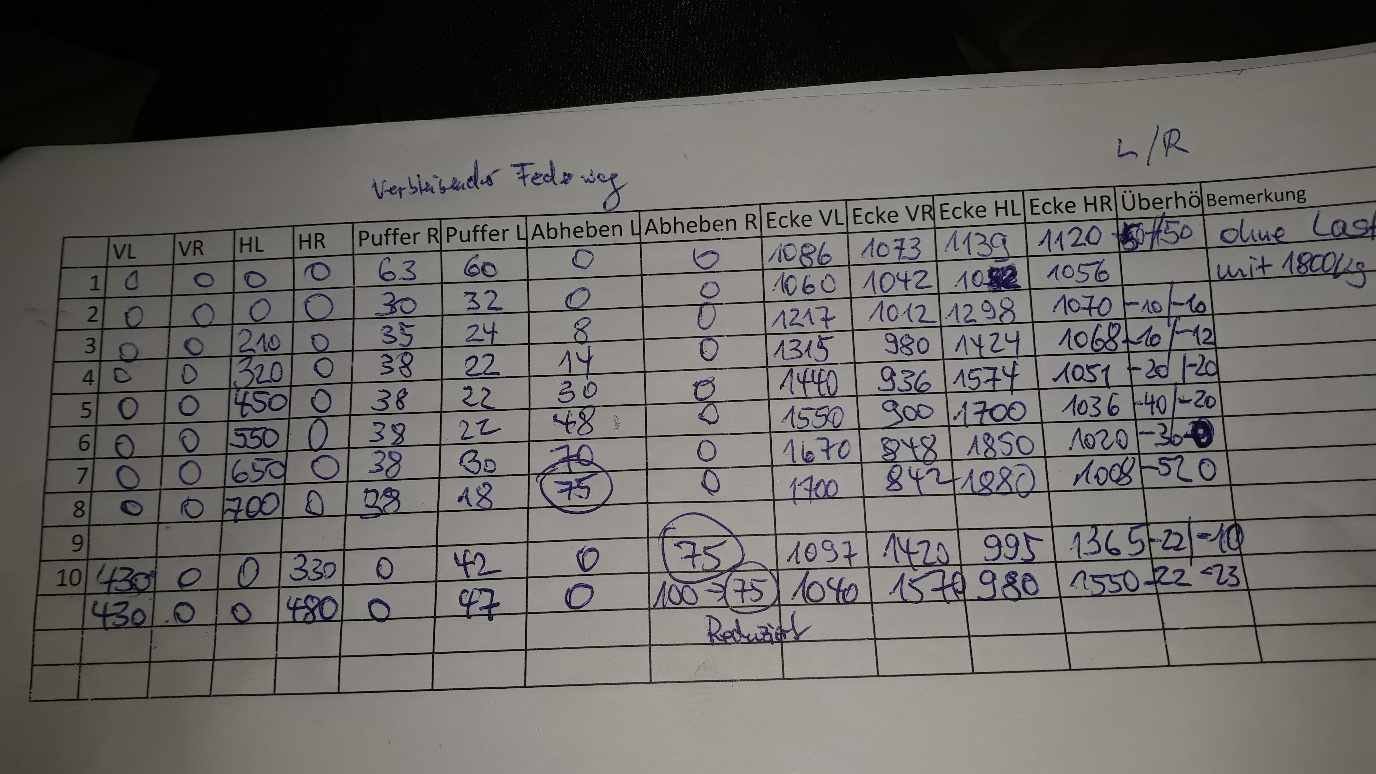 L/R
Verbleibender Federweg
VL VR HL HR Puffer R Puffer L Abheben L Abheben R Ecke VL Ecke VR Ecke HL Ecke HR Überhö Bemerkung
1 0 0 0 0 63 60 0 0 1086 1073 1139 1120 +50/+50 ohne Last
2 0 0 0 0 30 32 0 0 1060 1042 1056 mit 1800kg
3 0 0 210 0 35 24 8 0 1217 1012 1298 1070 -10/-10
4 0 0 320 0 38 22 14 0 1315 980 1424 1068 -10/-12
5 0 0 450 0 38 22 30 0 1440 936 1574 1051 -20/-20
6 0 0 550 0 38 22 48 0 1550 900 1700 1036 -40/-20
7 0 0 650 0 38 30 70 0 1670 848 1850 1020 -30 0
8 0 0 700 0 38 18 75 0 1700 842 1880 1008 -52 0
9
10 430 0 0 330 0 42 0 75 1097 1420 995 1365 -22/-10
430 0 0 480 0 47 0 100→75 1040 1570 980 1550 -22 -23
Reduziert